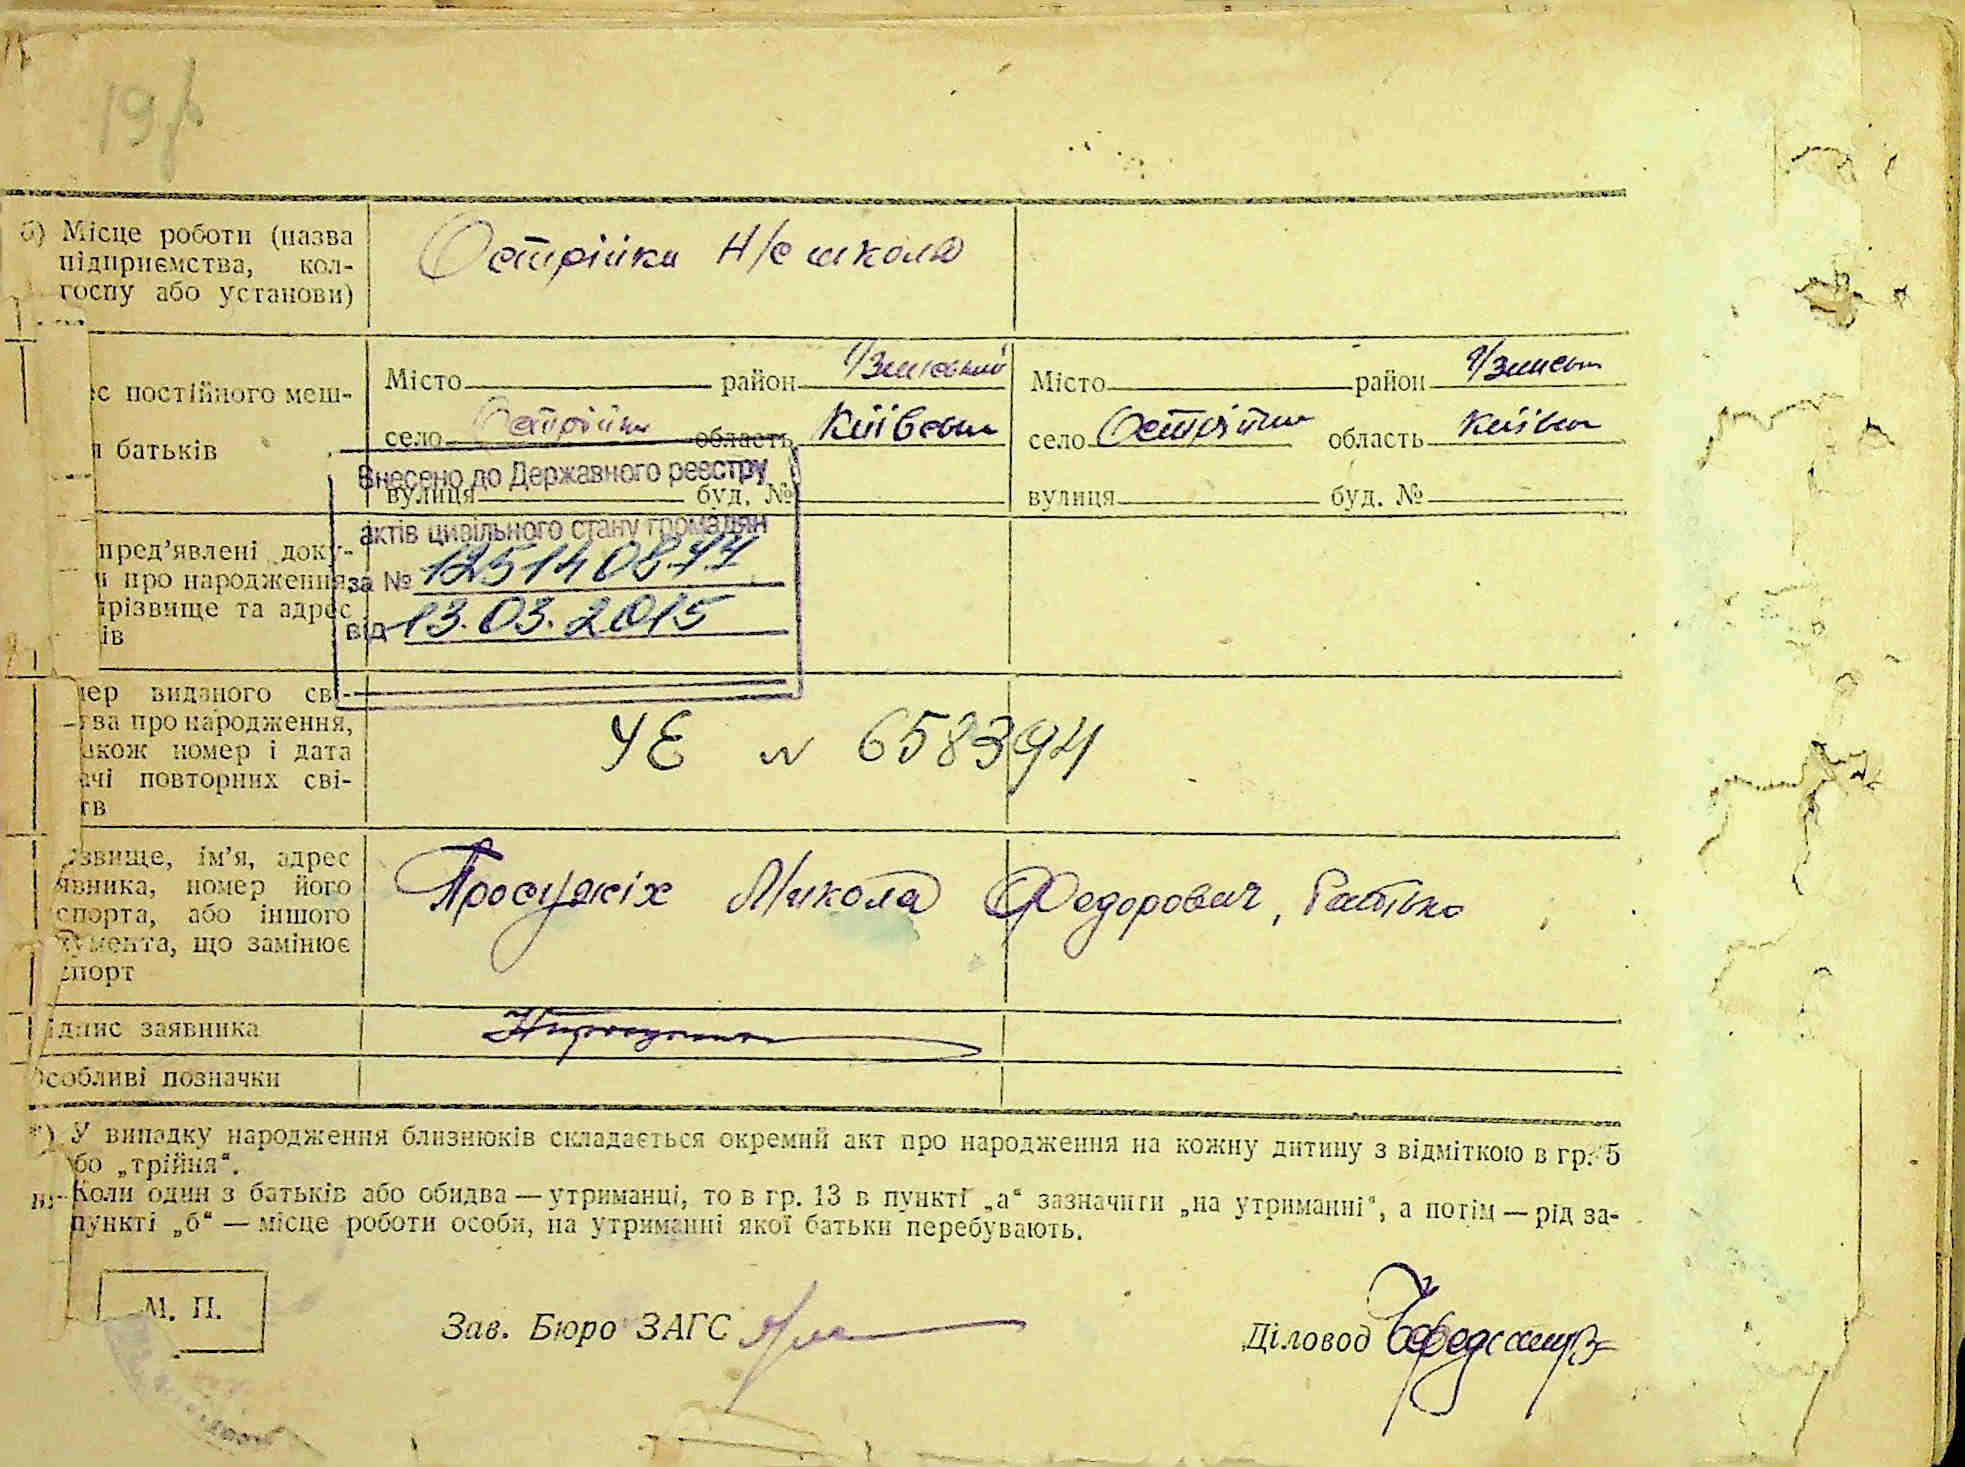 б) Місце роботи (назва
підприємства, кол-
госпу або установи)
Острійки Н/с школа
с постійного меш-
батьків
Місто район
село Острійки область Київськ
вулиця буд. №
Місто район
село Острійки область Київськ
вулиця буд. №
Внесено до Державного реєстру
актів цивільного стану громадян
за № 1251408
від 13.03.2015
пред’явлені доку-
и про народження,
прізвище та адрес
ів
мер виданого сві-
тва про народження,
акож номер і дата
ачі повторних сві-
тв
УЕ № 658394
звище, ім’я, адрес
явника, номер його
спорта, або іншого
умента, що замінює
спорт
Микола Федорович, Батько
ідпис заявника
Особливі позначки
*) У випадку народження близнюків складається окремий акт про народження на кожну дитину з відміткою в гр. 5
бо „трійня“.
Коли один з батьків або обидва — утриманці, то в гр. 13 в пункті „а“ зазначити „на утриманні“, а потім — рід за-
пункті „б“ — місце роботи особи, на утриманні якої батьки перебувають.
М. П.
Зав. Бюро ЗАГС
Діловод